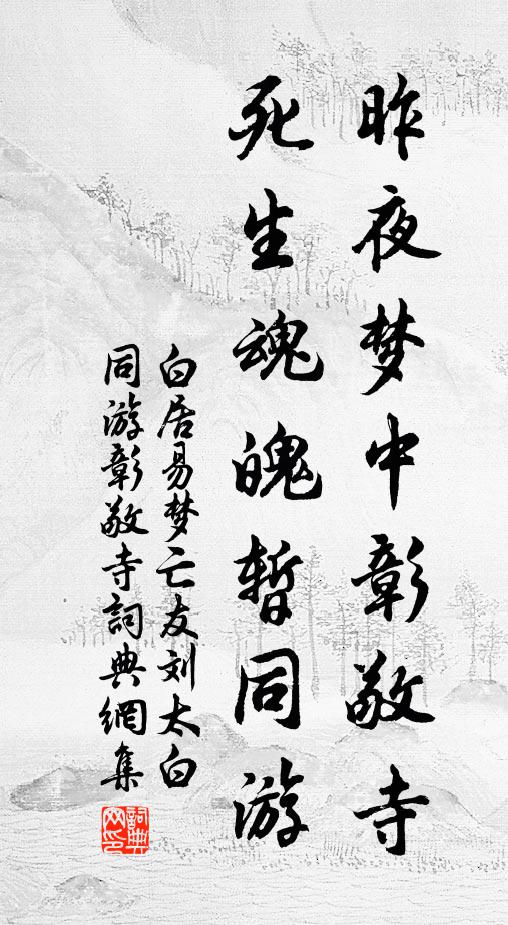 昨夜梦中彰敬寺
死生魂魄暂同游
白居易梦亡友刘太白
同游彰敬寺詞典網集
詞典
网印